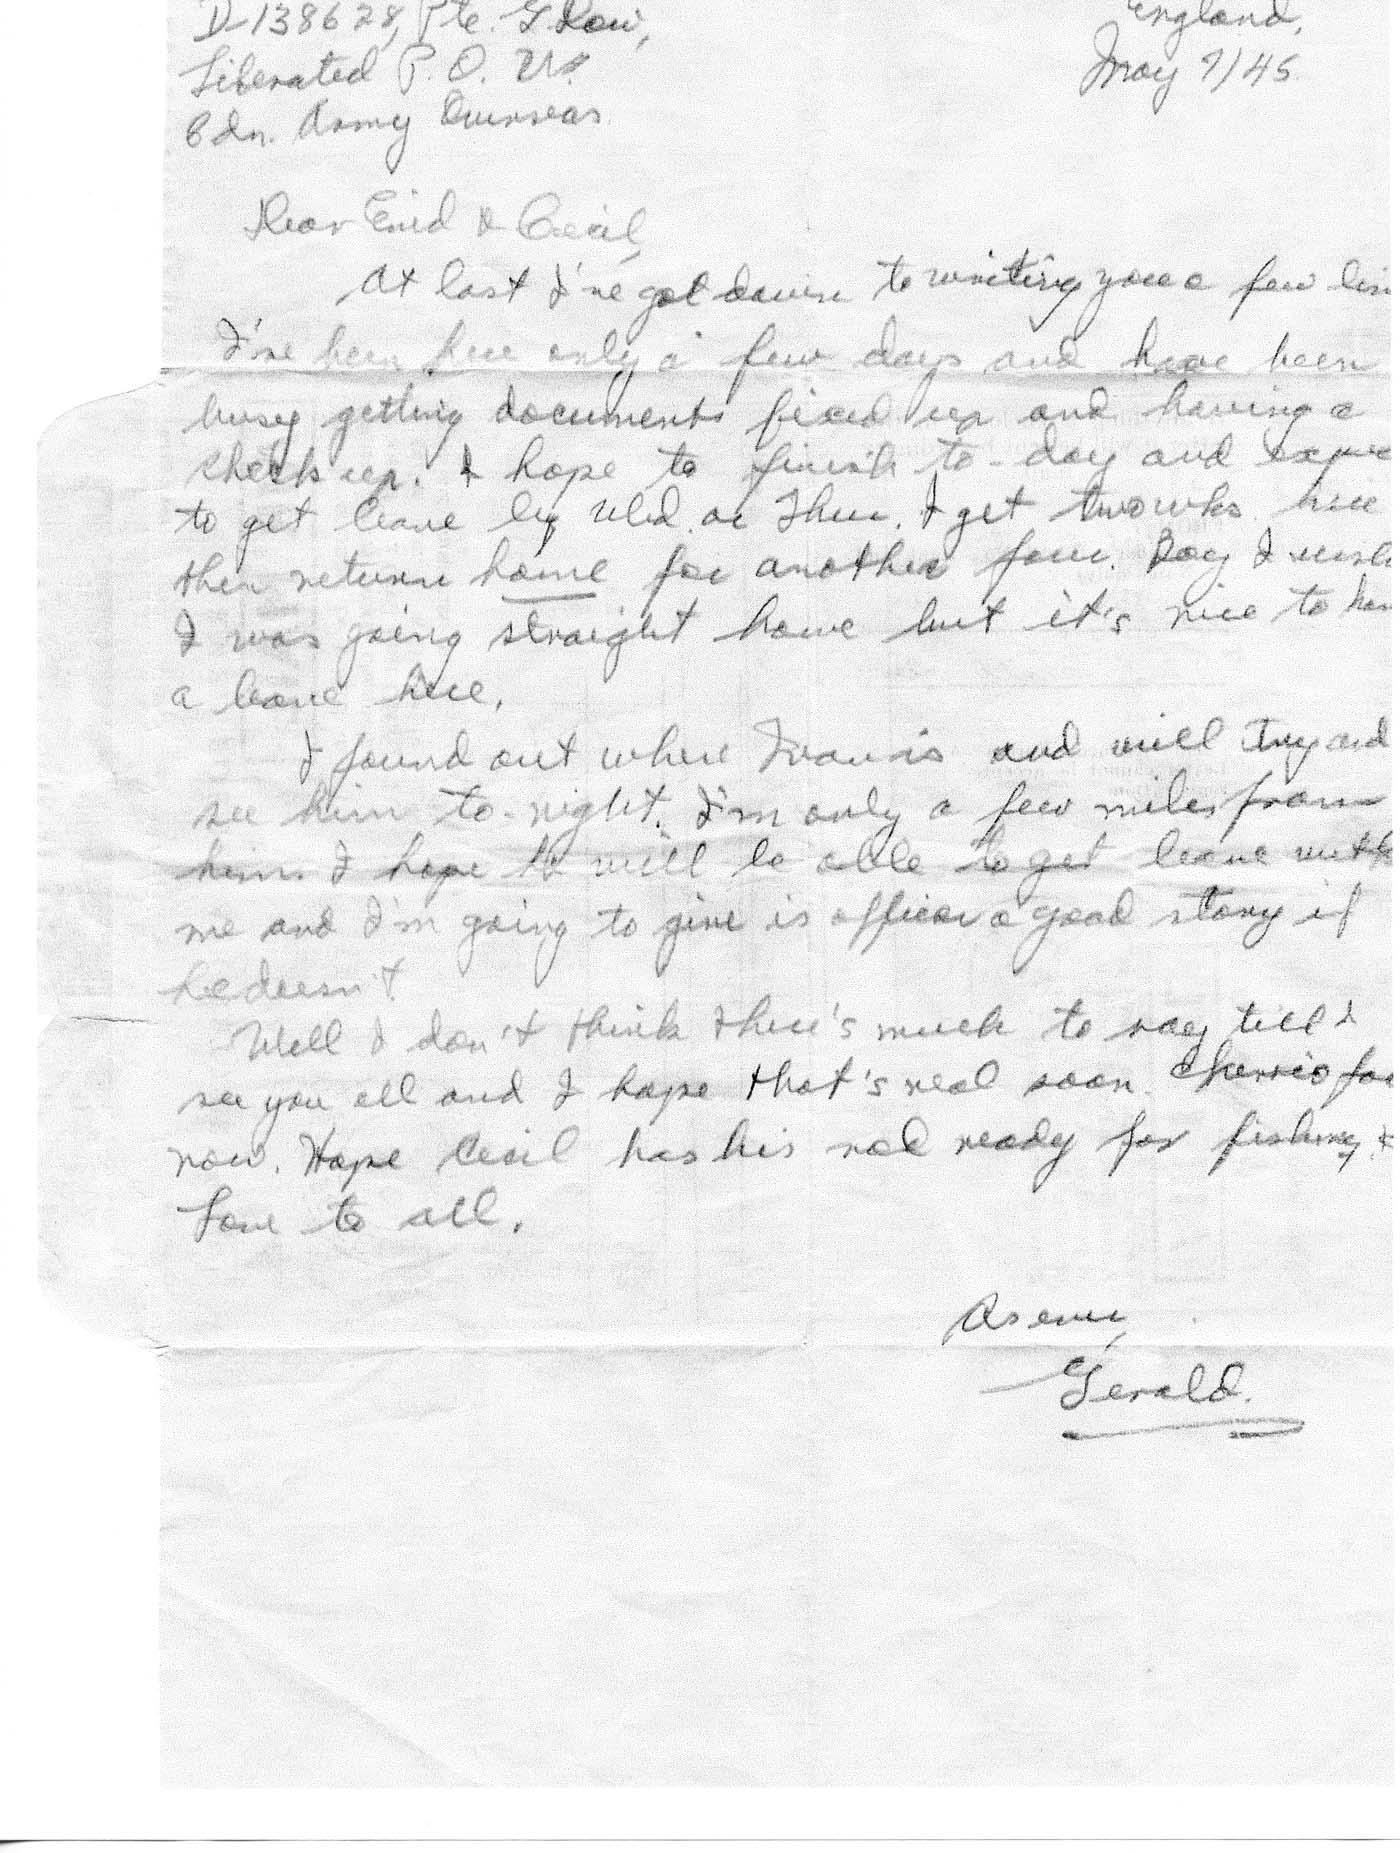 D-138628, Pte. G. Row,
England,
Liberated P. O. Ws.
May 7/45
Cdn. Army Overseas.
Dear Enid & Cecil,
At last I've got down to writing you a few lin
I've been here only a few days and have been
busy getting documents fixed up and having a
check up. I hope to finish to-day and expec
to get leave by Wed. or Thur. I get two wks here
then return home for another four. Boy I wish
I was going straight home but it's nice to hav
a leave here.
I found out where Francis and will try and
see him to-night. I'm only a few miles from
him I hope he will be able to get leave with
me and I'm going to give is officer a good story if
he doesn't.
Well I don't think there's much to say till I
see you all and I hope that's real soon. Cheerio for
now. Hope Cecil has his rod ready for fishing. &
Love to all.
As ever,
Gerald.